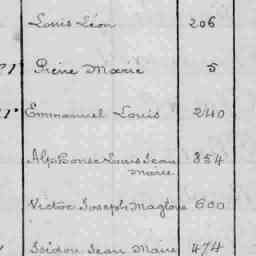 Louis Léon 206
Pierre Marie 5
Emmanuel Louis 240
Alphonse Louis Jean 854
Marie
Victor Joseph Magloire 600
Isidore Jean Marie 474